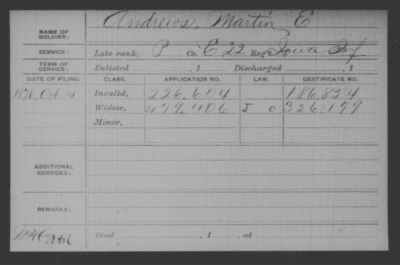 NAME OF SOLDIER: Andrews, Martin E
SERVICE: Late rank, P Co. E, 22 Reg't Iowa Inf
TERM OF SERVICE: Enlisted , 1 Discharged , 1
DATE OF FILING. CLASS. APPLICATION NO. LAW. CERTIFICATE NO.
1876 Oct 14 Invalid, 226.604 186.824
Widow, 479.406 J O 326.179
Minor,
ADDITIONAL SERVICES:
REMARKS:
Died , 1 , at